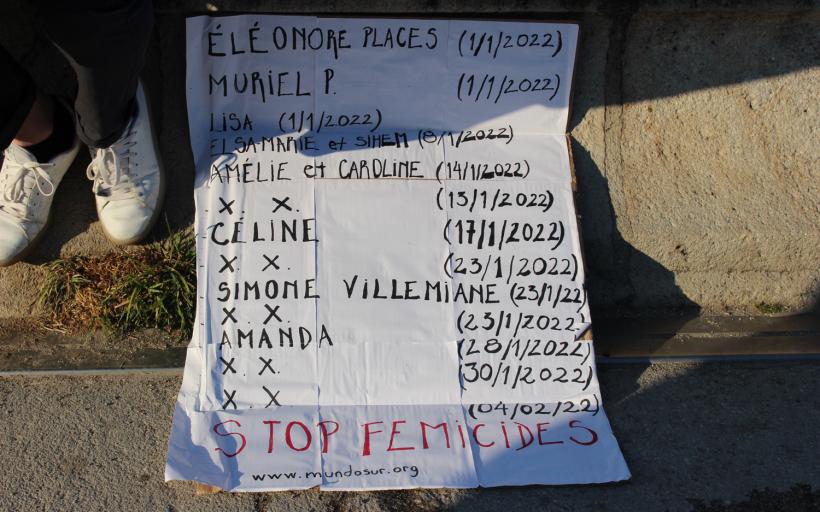 ÉLÉONORE PLACES (1/1/2022)
MURIEL P. (1/1/2022)
LISA (1/1/2022)
ELSA-MARIE et SIHEM (8/1/2022)
AMÉLIE et CAROLINE (14/1/2022)
X. X. (15/1/2022)
CÉLINE (17/1/2022)
X. X. (23/1/2022)
SIMONE VILLEMIANE (23/1/22)
X. X. (25/1/2022)
AMANDA (28/1/2022)
X. X. (30/1/2022)
X. X. (04/02/22)
STOP FEMICIDES
www.mundosur.org